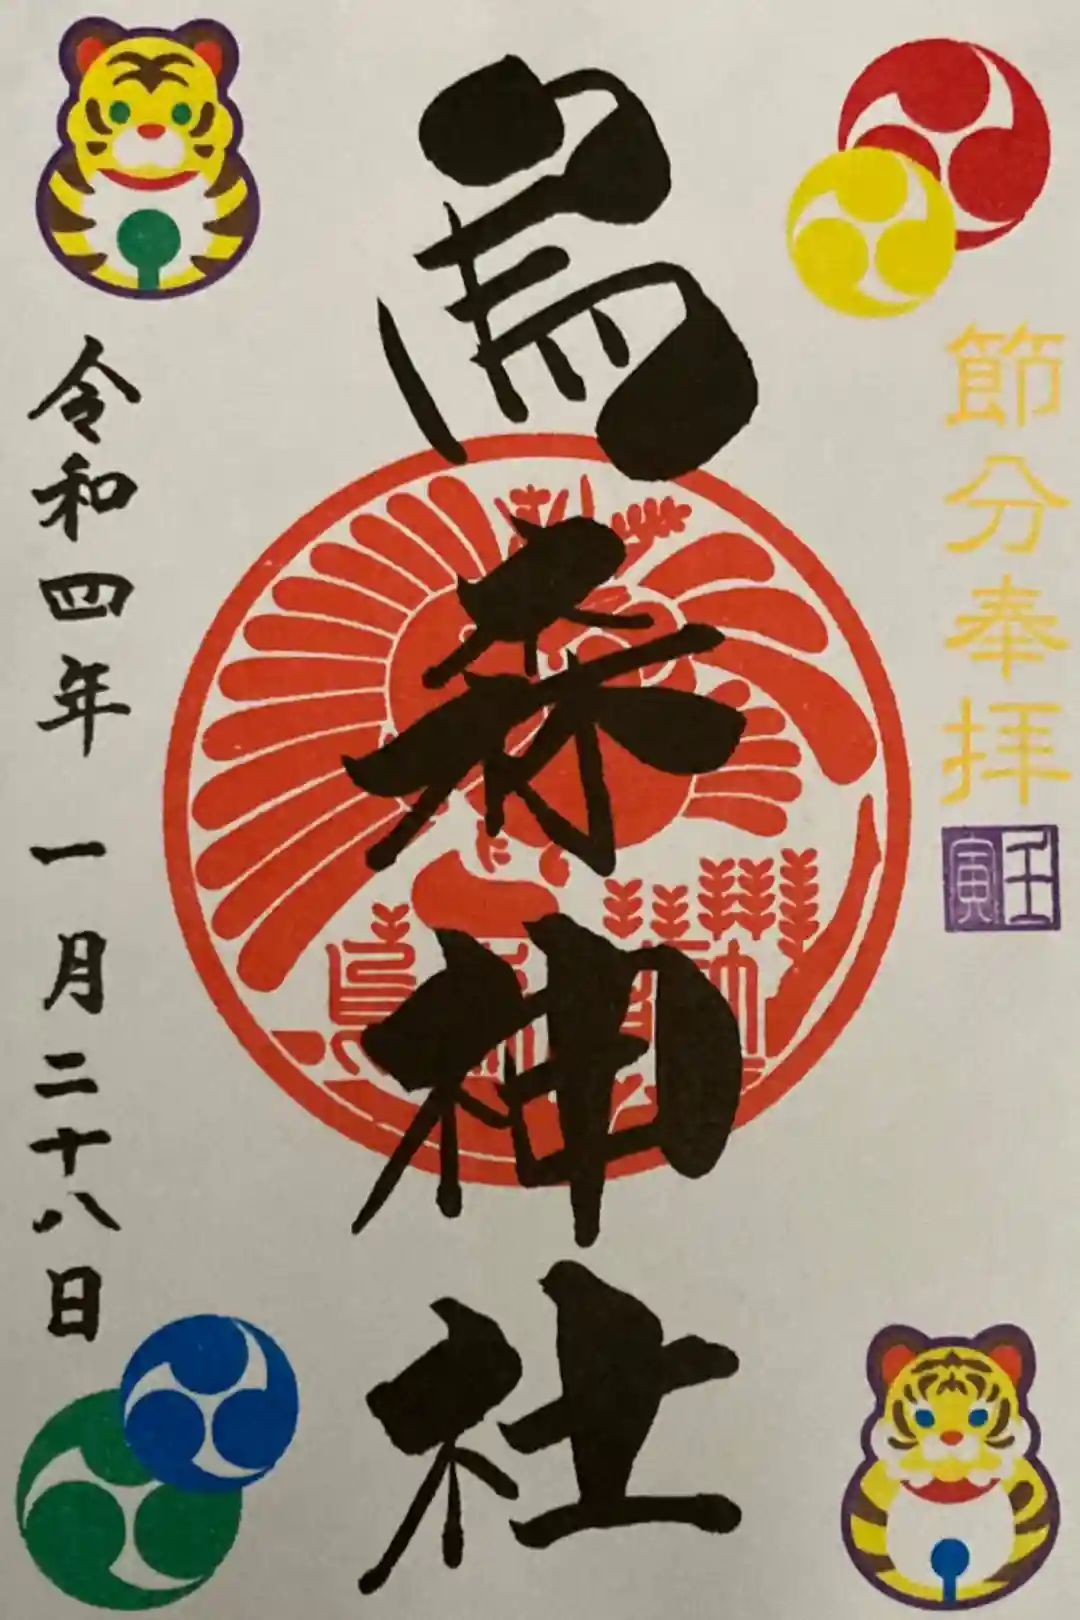 節分奉拝
壬寅
烏森神社
令和四年 一月二十八日